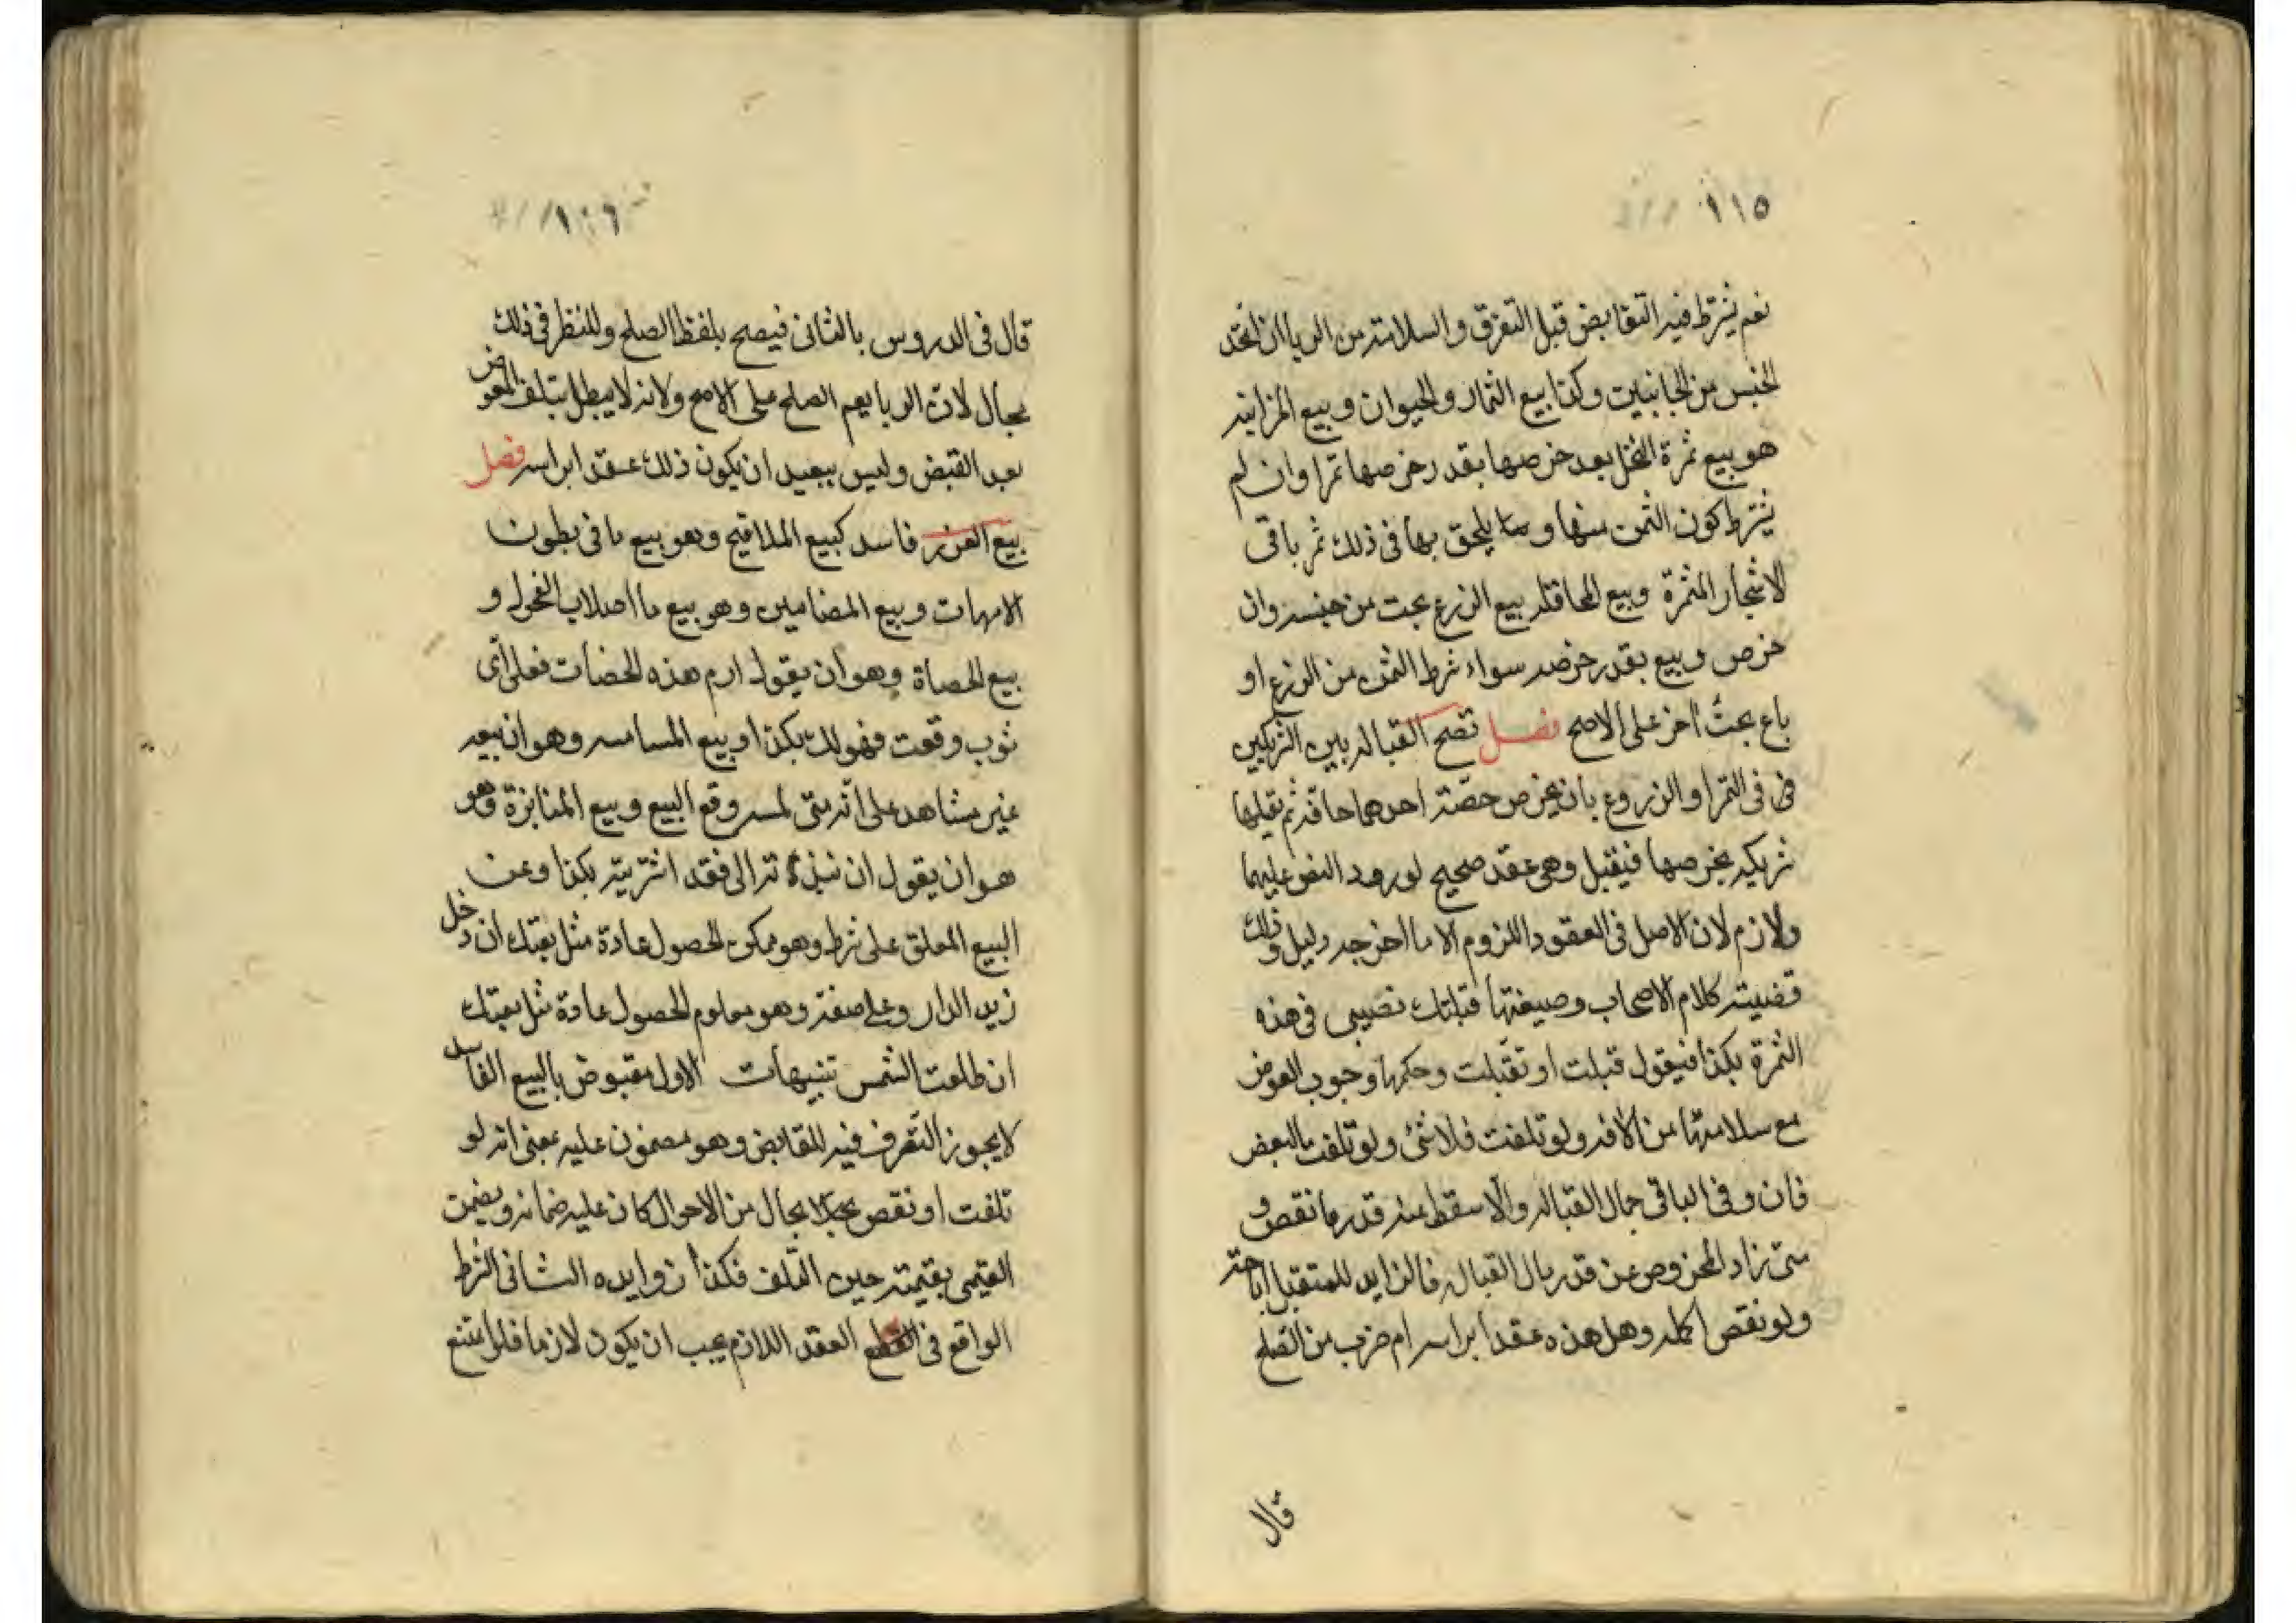 ١١٥
نعم يشترط فيه التقابض قبل التفرق والسلامة من الربا ان اتحد
الجنس من الجانبين وكذا بيع الثمار والحيوان وبيع المزابنه
هو بيع ثمرة النخل بعد خرصها بقدر خرصها تمرا وان لم
يشترط كون الثمن منها ومما يلحق بها في ذلك ثمر باقى
الاشجار المثمرة وبيع المحاقله بيع الزرع بحت من جنسه وان
خرص وبيع بقدر خرصه سواء شرط الثمن من الزرع او
باع بحت اخر على الاصح فصل تصح القباله بين الشريكين
فى فى الثمر او الزروع بان يخرص حصّة احدهما حاقه ثم يقبلها
شريكه بخرصها فيقبل وهى عقد صحيح لورود النص عليها
ولازم لان الاصل فى العقود اللزوم الا ما اخرجه دليل وذلك
قضيته كلام الاصحاب وصيغتها قبلتك نصيبى فى هذه
الثمرة بكذا فيقول قبلت او تقبلت وحكمها وجوب العوض
مع سلامتها من الافه ولو تلفت فلا شئ ولو تلفت البعض
فان وفى الباقى بمال القباله والّا سقط منه قدر ما نقص و
متى زاد المخروص عن قدر مال القباله فالزايد للمتقبل اباحة
ولو نقص اكمله وهل هذه عقدا براسه ام ضرب من الصلح
قال
١١٦
قال فى الدروس بالثانى فيصح بلفظ الصلح وللنظر فى ذلك
مجال لان الربا يعم الصلح على الاصح ولانه لا يبطل بتلف المعوض
بعد القبض وليس ببعيد ان يكون ذلك عقد ابراسه فصل
بيع الغرر فاسد كبيع الملاقيح وهو بيع ما فى بطون
الامهات وبيع المضامين وهو بيع ما اصلاب الفحول و
بيع الحصاة وهو ان يقول ارم هذه الحضات فعلى اى
ثوب وقعت فهو لك بكذا وبيع الملامسه وهو ان يبيعه
غير مشاهد على انّه متى لمسه وقع البيع وبيع المنابزة وهو
هو ان يقول ان نبذته الى فقد اشتريته بكذا وعن
البيع المعلق على شرط وهو ممكن الحصول عادة مثل بعتك ان دخل
زيد الدار وعلى صفة وهو معلوم الحصول عادة مثل بعتك
ان طلعت الشمس تنبيهات الاول مقبوض بالبيع الفاسد
لا يجوز التصرف فيه للقابض وهو مضمون عليه بمعنى انه لو
تلفت او نقص بحال من الاحوال كان عليه ضمانه ويضمن
القيمى بقيمته حين التلف فكذا زوايده الثانى الشرط
الواقع فى العقد اللازم يجب ان يكون لازما فلو امتنع